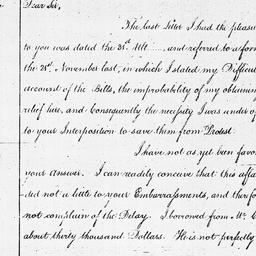 Dear Sir,
The last Letter I had the pleasu
to you was dated the 25th. Ult ...., and referred to a form
the 28th. November last, in which I stated my Difficul
account of the Bills, the improbability of my obtaining
relief here, and Consequently the necessity I was under of
to your Interposition to save them from Protest.
I have not as yet been favo
your Answer. I can readily conceive that this affa
did not a little to your Embarrassments, and therefo
not complain of the Delay. I borrowed from Mr.
about thirty thousand Dollars. He is not perfectly